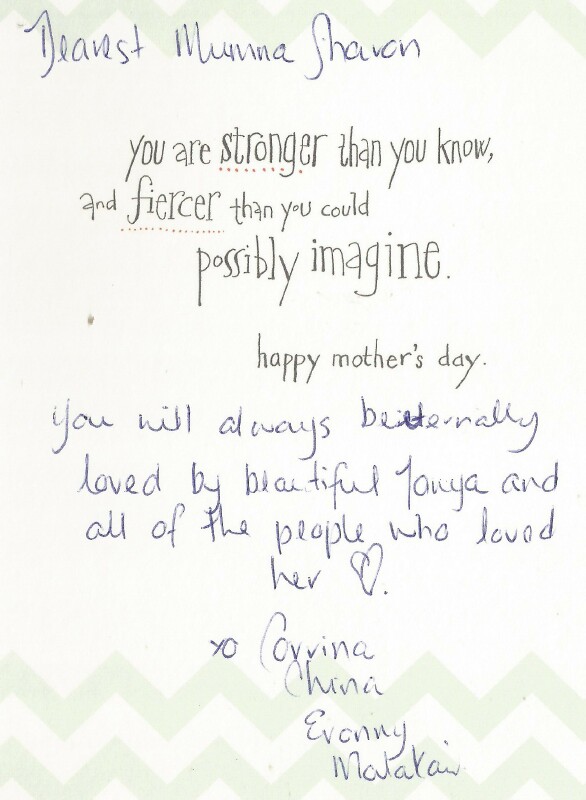 Dearest Mumma Sharon
you are stronger than you know,
and fiercer than you could
possibly imagine.
happy mother's day.
You will always be eternally
loved by beautiful Tonya and
all of the people who loved
her ♡.
xo Corrina
China
Evonny